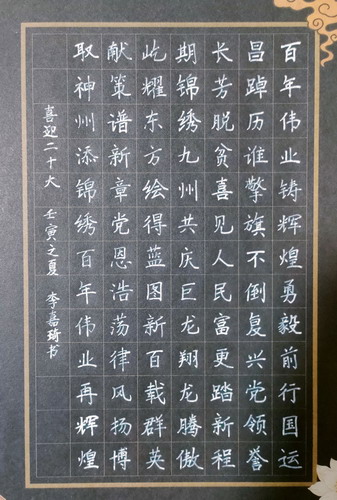 百年伟业铸辉煌勇毅前行国运
昌踔历谁擎旗不倒复兴党领誉
长芳脱贫喜见人民富更踏新程
期锦绣九州共庆巨龙翔龙腾傲
屹耀东方绘得蓝图新百载群英
献策谱新章党恩浩荡律风扬博
取神州添锦绣百年伟业再辉煌
喜迎二十大 壬寅之夏 李嘉琦书